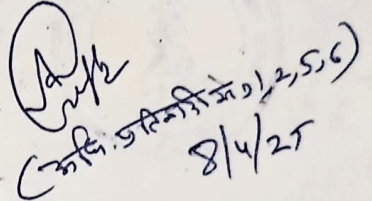 (अधि. प्रतिवादी क्र 1, 2, 5, 6)
8/4/25